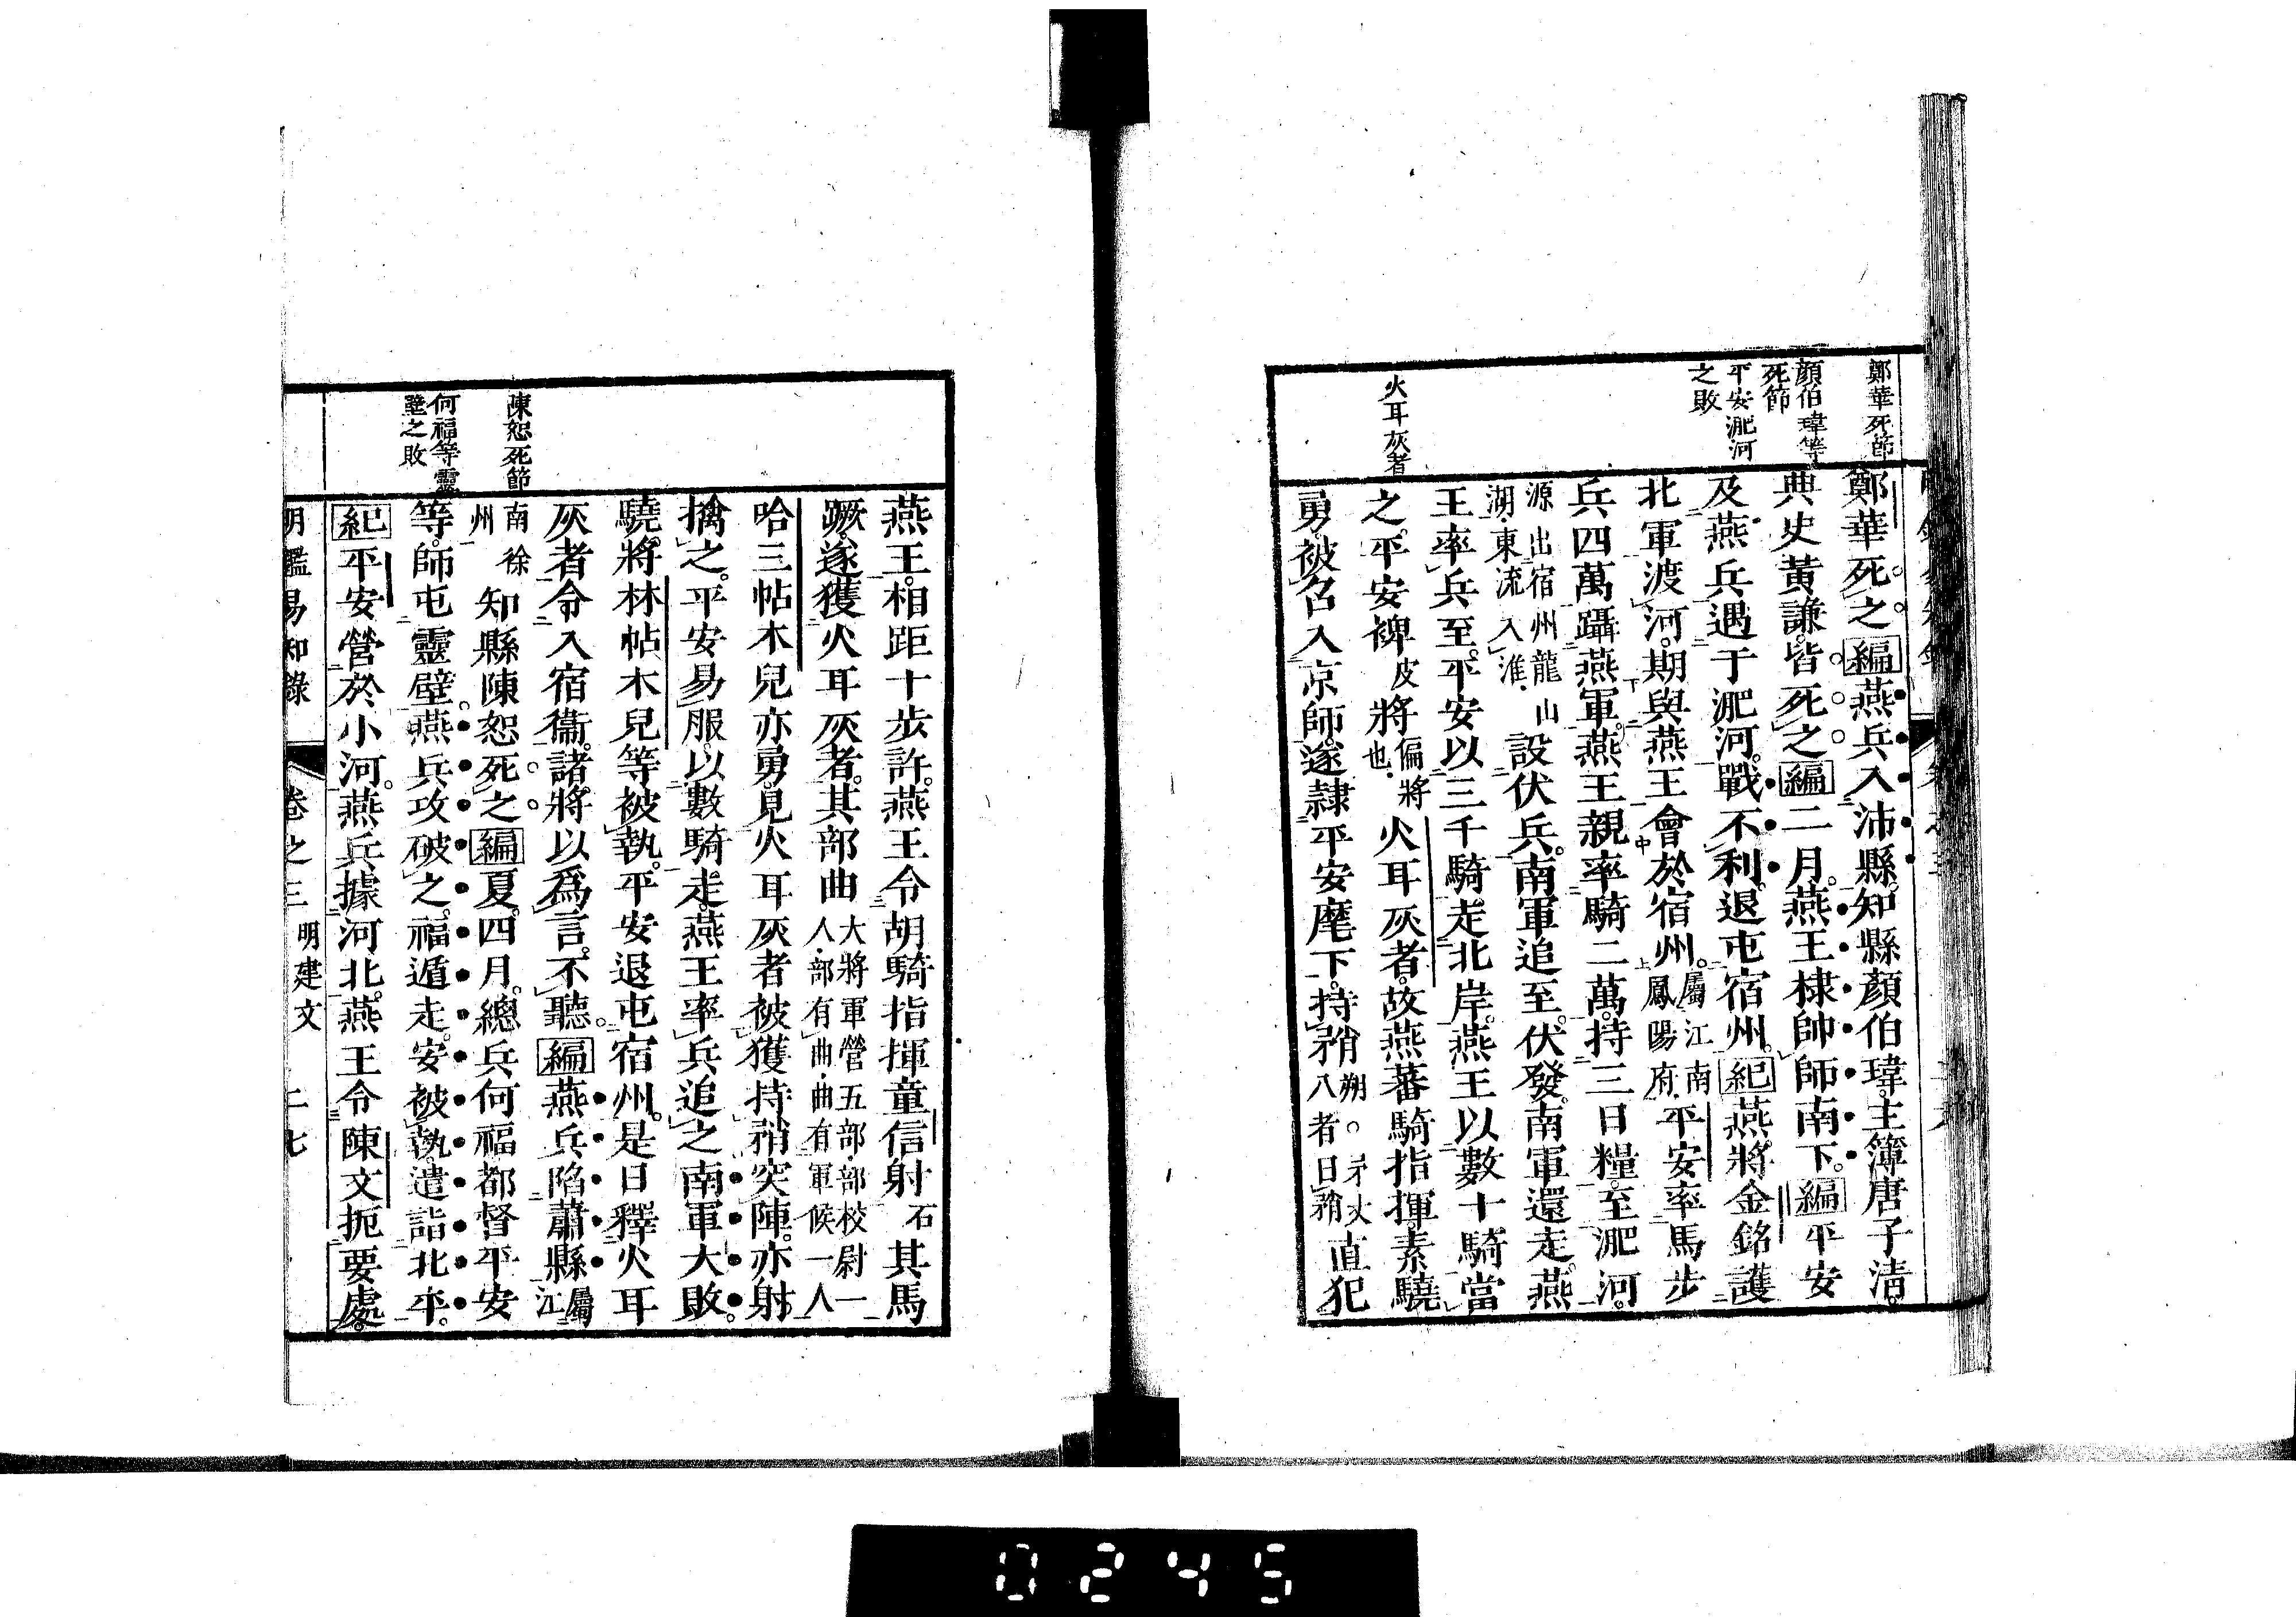 鄭華死節
顏伯瑋等
死節
平安淝河
之敗
火耳灰者
鄭華死之。編燕兵入沛縣。知縣顏伯瑋。主簿唐子清。
典史黃謙。皆死之。編二月。燕王棣帥師南下。編平安
及燕兵遇于淝河。戰不利。退屯宿州。紀燕將金銘護
北軍渡河。期與燕王會於宿州。屬江南鳳陽府。平安率馬步
兵四萬躡燕軍。燕王親率騎二萬。持三日糧。至淝河。
源出宿州龍山湖。東流入淮。設伏兵。南軍追至。伏發。南軍還走。燕
王率兵至。平安以三千騎。走北岸。燕王以數十騎當
之。平安裨皮將偏將也。火耳灰者。故燕蕃騎指揮。素驍
勇。被召入京師。遂隸平安麾下。持矟朔。矛丈八者曰矟直犯
燕王。相距十步許。燕王令胡騎指揮童信射石其馬
蹶。遂獲火耳灰者。其部曲大將軍營五部。部校尉一人。部有曲。曲有軍候一人
哈三帖木兒亦勇。見火耳灰者被獲。持矟突陣。亦射
擒之。平安易服。以數騎走。燕王率兵追之。南軍大敗。
驍將林帖木兒等被執。平安退屯宿州。是日釋火耳
灰者。令入宿衞。諸將以爲言。不聽。編燕兵陷蕭縣。屬江
南徐州知縣陳恕死之。編夏。四月。總兵何福都督平安
等。師屯靈壁。燕兵攻破之。福遁走。安被執。遣詣北平。
紀平安營於小河。燕兵據河北。燕王令陳文扼要處。
陳恕死節
何福等靈
壁之敗
明鑑易知錄 卷之三 明建文 二七
0245